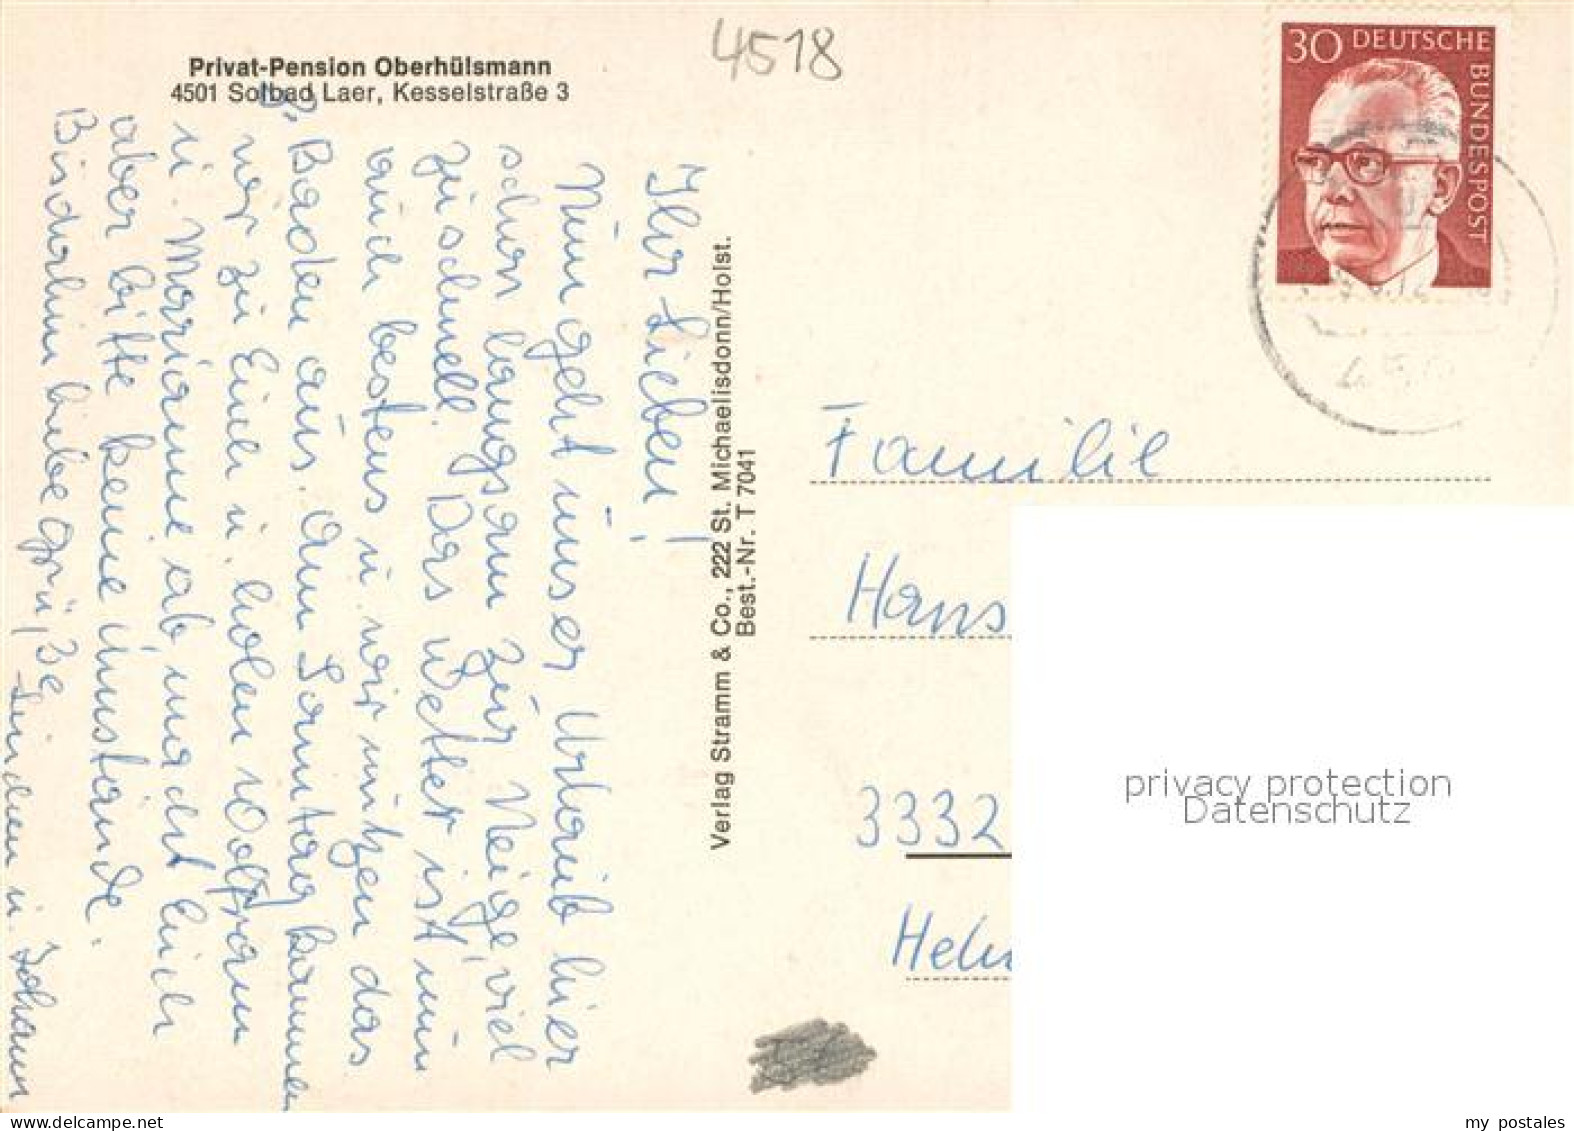 4518
Privat-Pension Oberhülsmann
4501 Solbad Laer, Kesselstraße 3
30 DEUTSCHE
BUNDESPOST
Ihr Lieben!
Nun geht unser Urlaub hier
schon langsam zur Neige, viel
zu schnell. Das Wetter ist nun
auch bestens u. wir nutzen das
Baden aus. Am Sonntag kommen
wir zu Euch u. holen Wolfram
u. Marianne ab, macht Euch
aber bitte keine Umstände.
Bis dahin liebe Grüße
u. Johann
Verlag Stramm & Co., 222 St. Michaelisdonn/Holst.
Best.-Nr. T 7041
Familie
Hans
3332
privacy protection
Datenschutz
my-postcard.delcampe.net
my postales